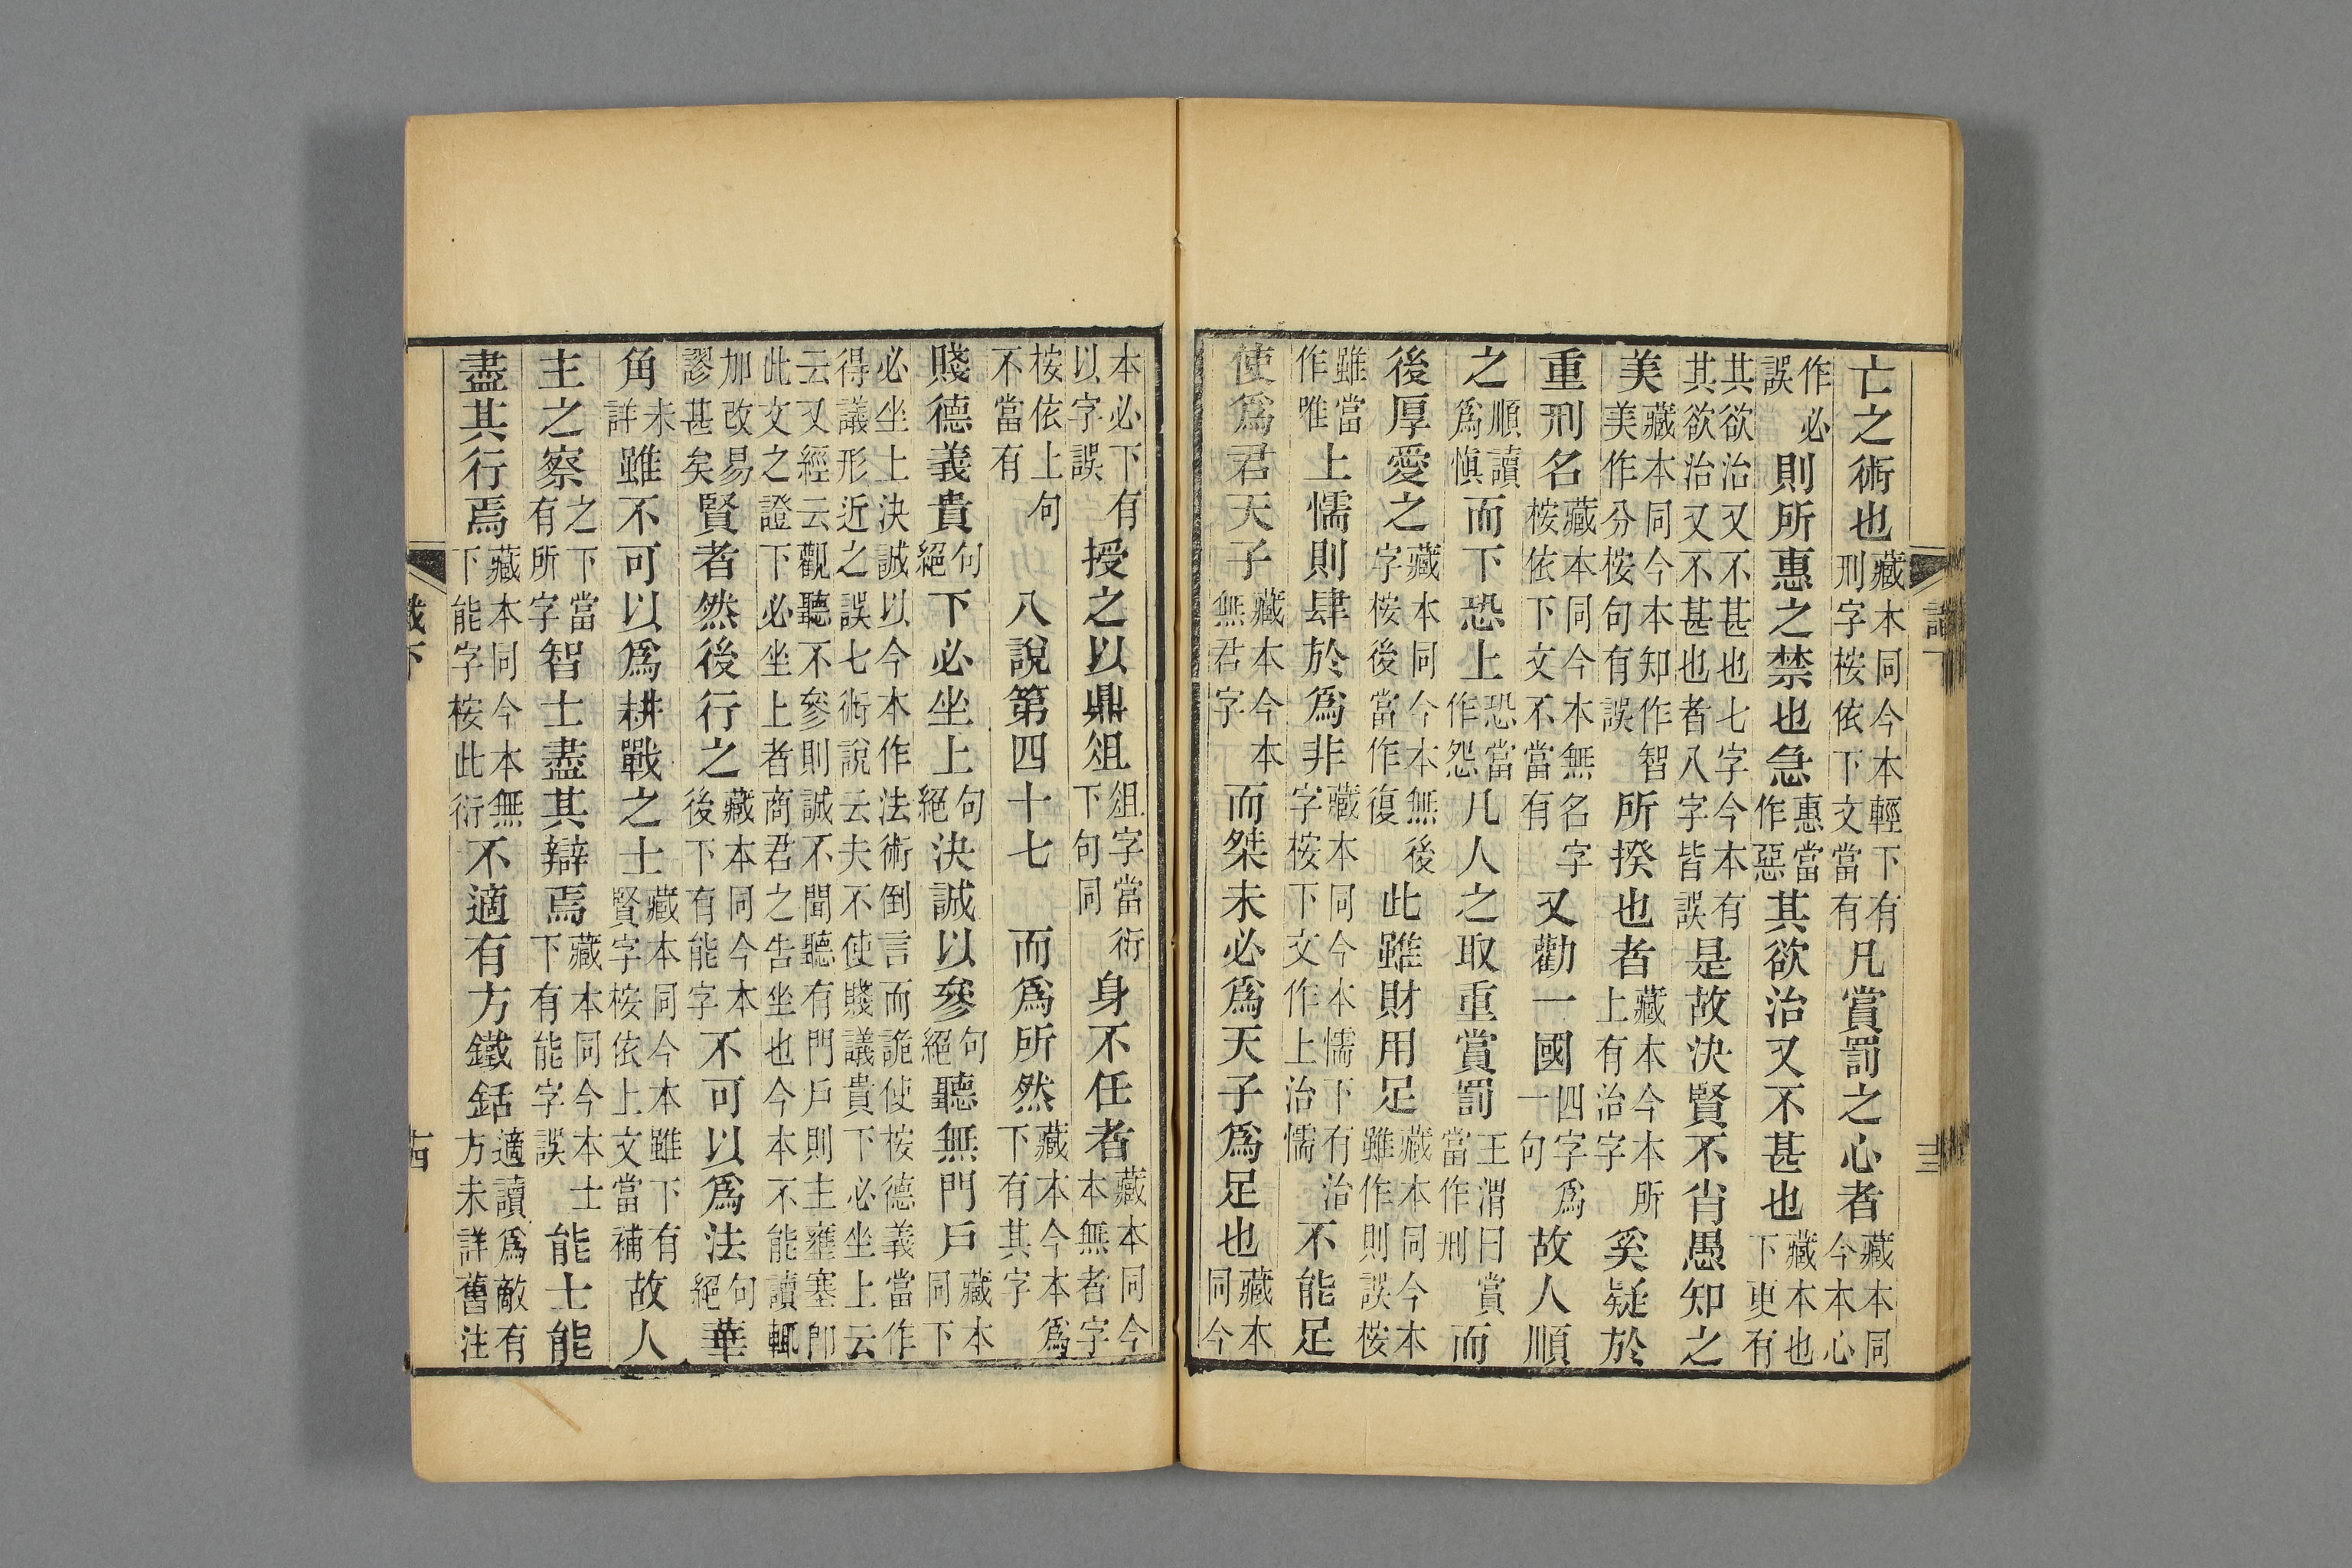 亡之術也藏本同今本輕下有刑字桉依下文當有凡賞罰之心者藏本同今本心
作必誤則所惠之禁也急惠當作惡其欲治又不甚也藏本也下更有
其欲治又不甚也七字今本有其欲治又不甚也者八字皆誤是故決賢不肖愚知之
美藏本同今本知作智美作分桉句有誤所揆也者藏本今本所上有治字奚疑於
重刑名藏本同今本無名字桉依下文不當有又勸一國四字爲一句故人順
之順讀爲愼而下恐上恐當作怨凡人之取重賞罰王渭曰賞當作刑而
後厚愛之藏本同今本無後字桉後當作復此雖財用足藏本同今本雖作則誤桉
雖當作唯上懦則肆於爲非藏本同今本懦下有治字桉下文作上治懦不能足
使爲君天子藏本今本無君字而桀未必爲天子爲足也藏本同今
本必下有以字誤授之以鼎俎俎字當術下句同身不任者藏本同今本無者字
桉依上句不當有八說第四十七 而爲所然藏本今本爲下有其字
賤德義貴句絕下必坐上句絕決誠以參句絕聽無門戶藏本同下
必坐上決誠以今本作法術倒言而詭使桉德義當作
得議形近之誤七術說云夫不使賤議貴下必坐上云
云又經云觀聽不參則誠不聞聽有門戶則主壅塞卽
此文之證下必坐上者商君之告坐也今本不能讀輒
加改易謬甚矣賢者然後行之藏本同今本後下有能字不可以爲法句絕華
角未詳雖不可以爲耕戰之士藏本同今本雖下有賢字桉依上文當補故人
主之察之下當有所字智士盡其辯焉藏本同今本士下有能字誤能士能
盡其行焉藏本同今本無下能字桉此衍不適有方鐵銛適讀爲敵有方未詳舊注